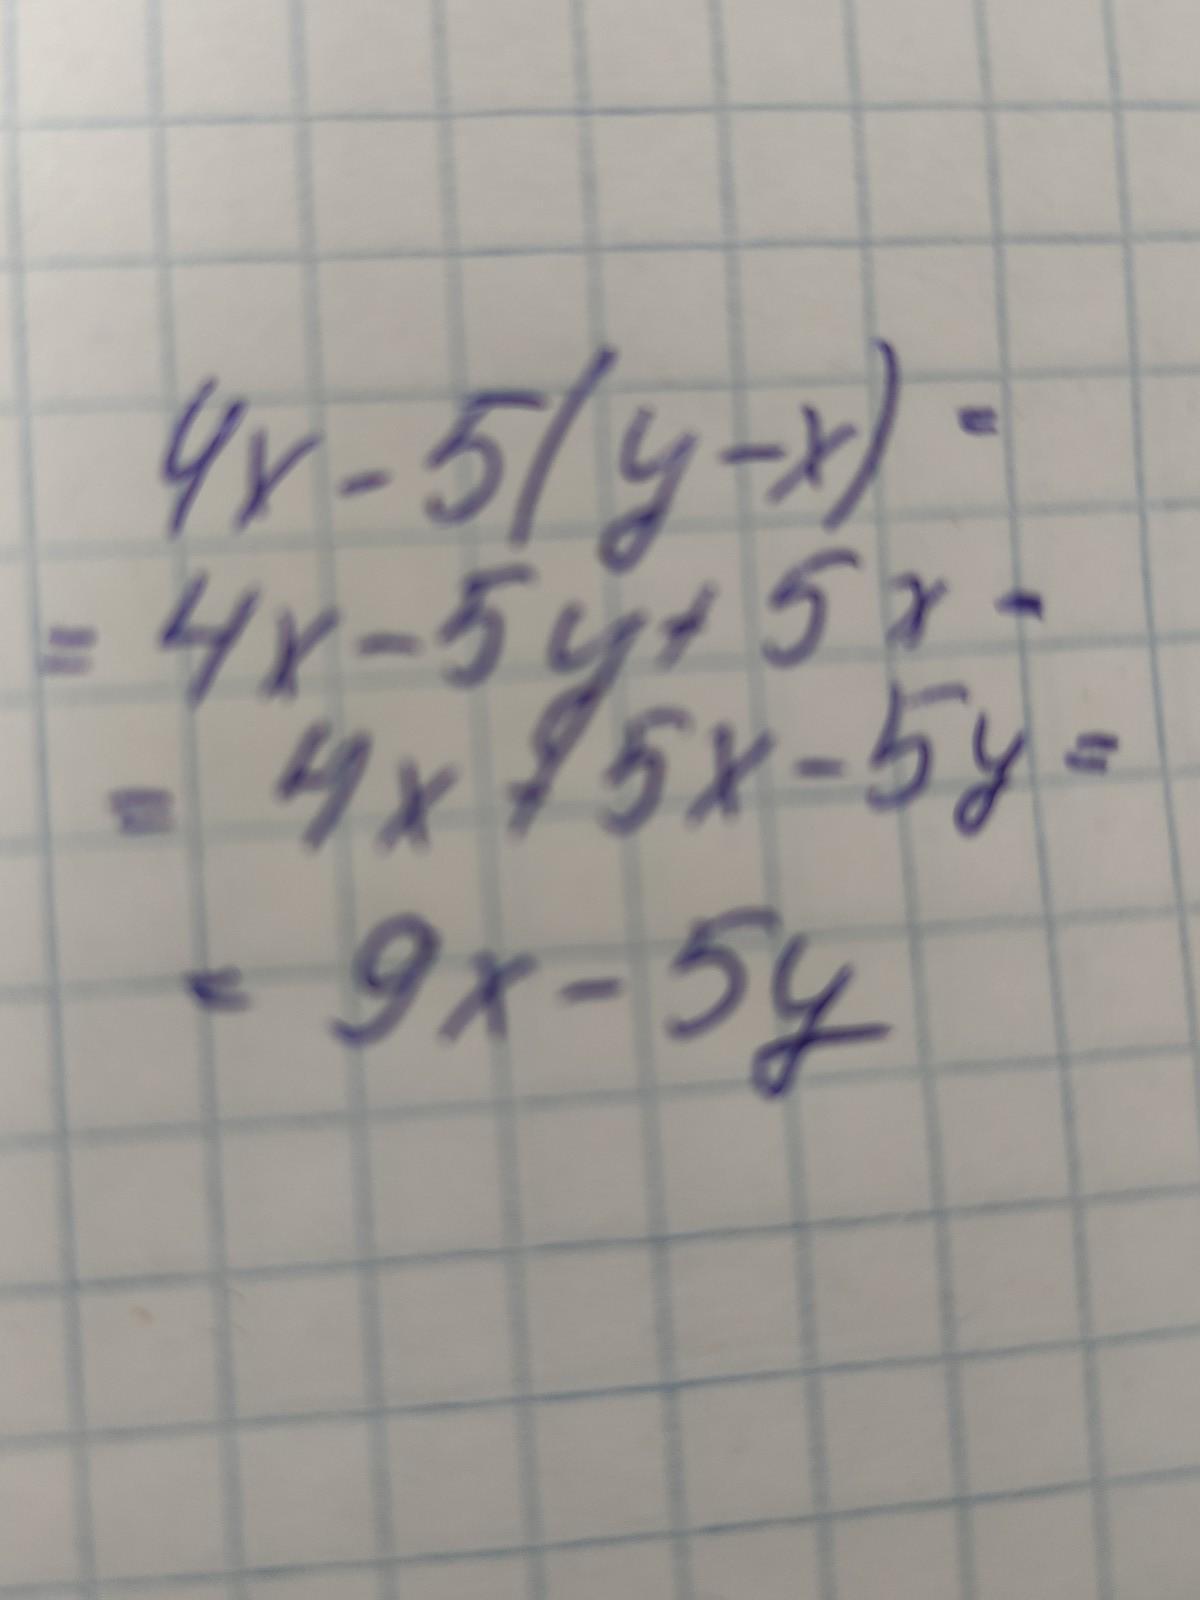 4x - 5(y - x) =
= 4x - 5y + 5x =
= 4x + 5x - 5y =
= 9x - 5y